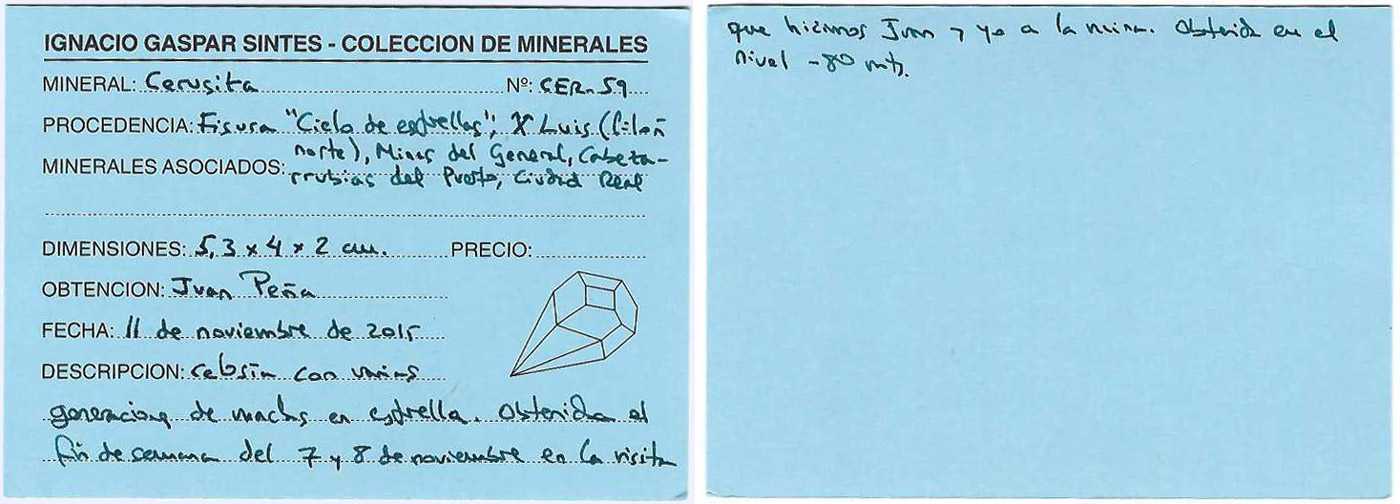 IGNACIO GASPAR SINTES - COLECCION DE MINERALES
MINERAL: Cerusita Nº: CER-59
PROCEDENCIA: Fisura "Cielo de estrellas", X Luis (filón
norte), Minas del General, Cabeza-
MINERALES ASOCIADOS: rrubias del Puerto, Ciudad Real
DIMENSIONES: 5,3 x 4 x 2 cm. PRECIO:
OBTENCION: Juan Peña
FECHA: 11 de noviembre de 2015
DESCRIPCION: con varias
generaciones de maclas en estrella. Obtenida el
fin de semana del 7 y 8 de noviembre en la visita
que hicimos Juan y yo a la mina. Obtenida en el
nivel -80 mts.